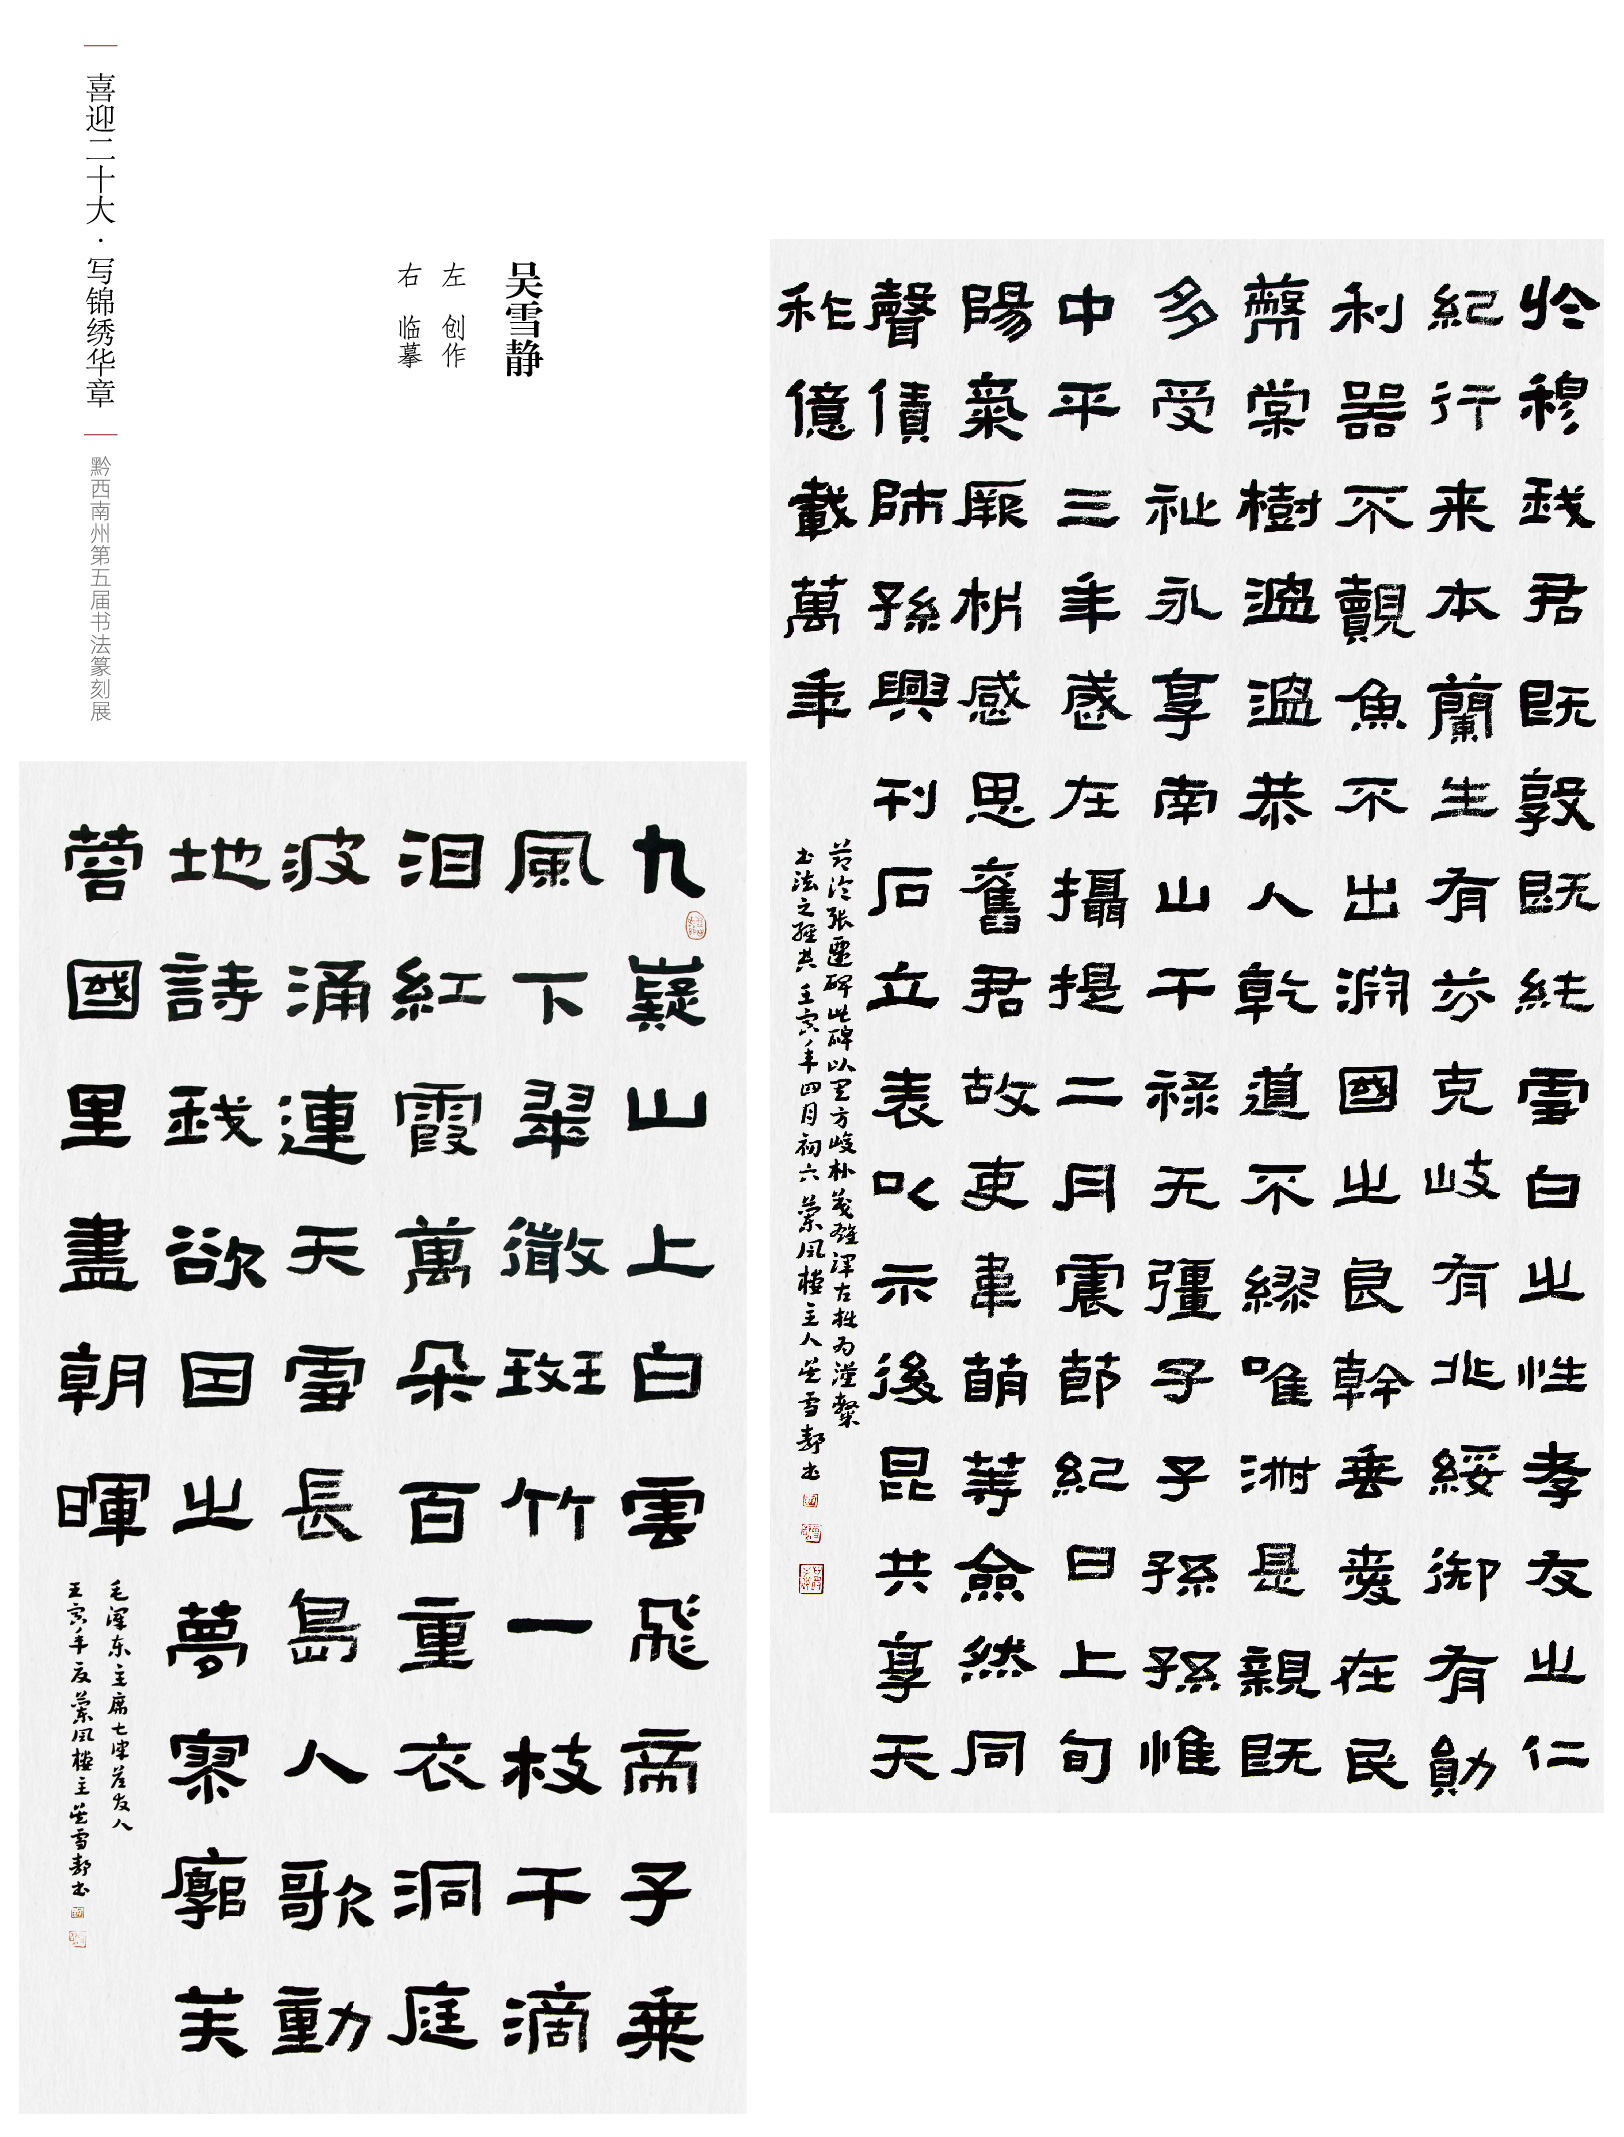 喜迎二十大·写锦绣华章
黔西南州第五届书法篆刻展
吴雪静
左 创作
右 临摹
於穆我君既敦既純雪白之性孝友之仁
紀行来本蘭生有芬克岐有兆綏御有勛
利器不覿魚不出渊國之良幹垂愛在民
蔽芾棠樹温温恭人乾道不繆唯淑是親既
多受祉永享南山干祿无疆子子孫孫惟
中平三年歲在攝提二月震節紀日上旬
陽氣厥析感思舊君故吏韋萌等僉然同
聲賃師孫興刊石立表以示後昆共享天
祚億載萬年
节临张遷碑此碑以其方峻朴茂雄浑古拙为
书法之 壬寅年四月初六蘭风楼主人吴雪静书
九嶷山上白雲飛帝子乘
風下翠微斑竹一枝千滴
泪紅霞萬朵百重衣洞庭
波涌連天雪長島人歌動
地詩我欲因之夢寥廓芙
蓉國里盡朝暉
毛泽东主席七律答友人
壬寅年夏蘭风楼主吴雪静书